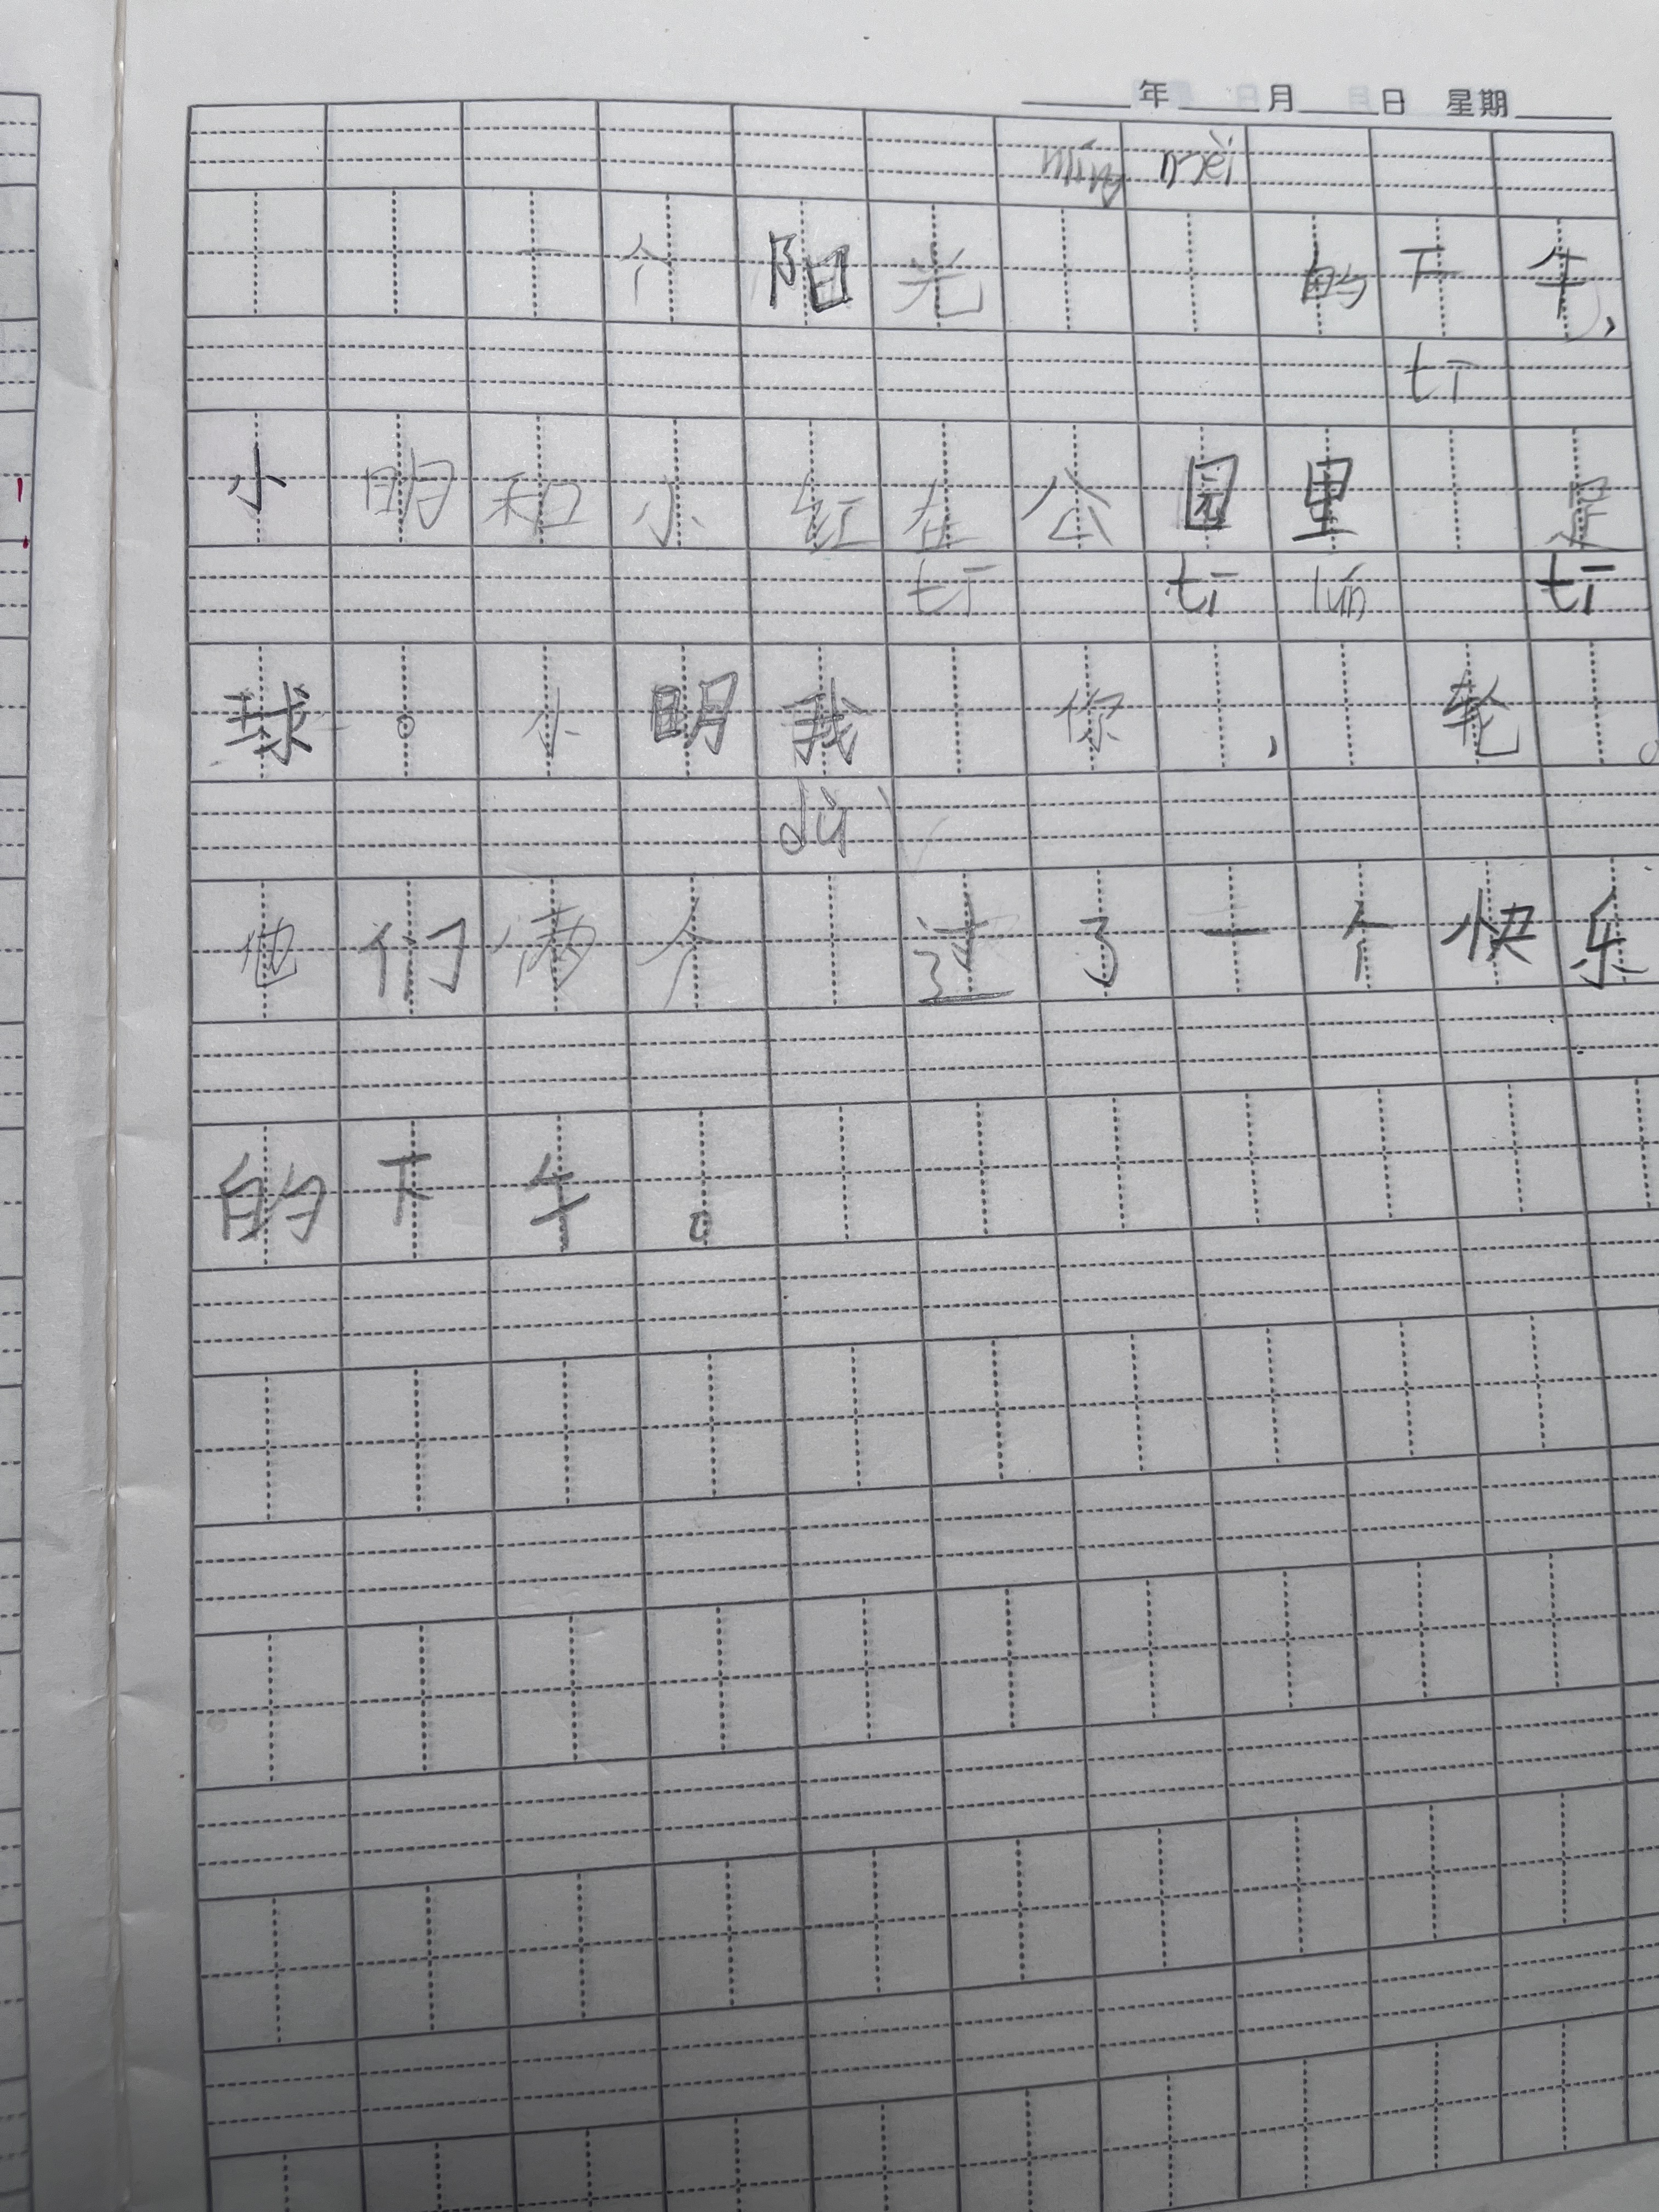 年 月 日 星期
míng mèi
一个阳光 的下午,
tī
小明和小红在公园里 足
tī tī lún tī
球。小明我 你 , 轮 。
dù
他们俩个 过了一个快乐
的下午。